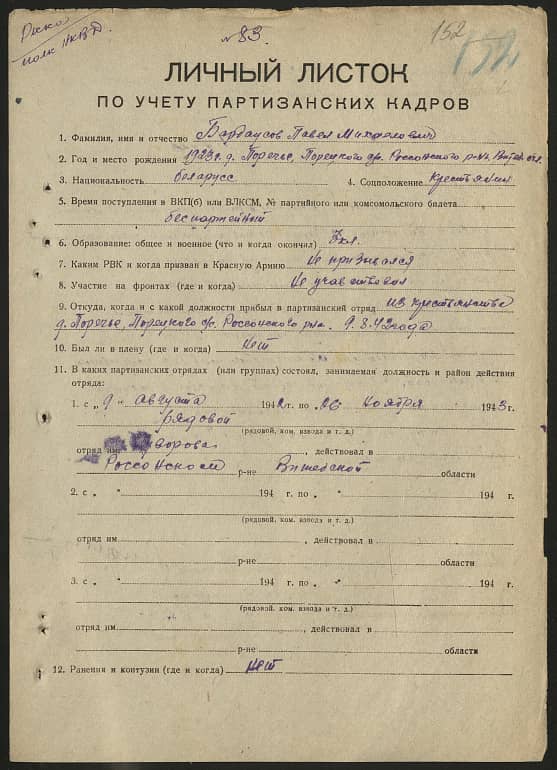 полк НКВД
№ 83.
152
152
ЛИЧНЫЙ ЛИСТОК
ПО УЧЕТУ ПАРТИЗАНСКИХ КАДРОВ
1. Фамилия, имя и отчество Барбаусов Павел Михайлович
2. Год и место рождения 1923г. д. Поречье, Порецкого с/с. Россонского р-на, Витеб. обл.
3. Национальность беларусс 4. Соцположение Крестьянин
5. Время поступления в ВКП(б) или ВЛКСМ, № партийного или комсомольского билета
беспартейный
6. Образование: общее и военное (что и когда окончил) кл.
7. Каким РВК и когда призван в Красную Армию Не призывался
8. Участие на фронтах (где и когда) Не участвовал
9. Откуда, когда и с какой должности прибыл в партизанский отряд из крестьянства
д. Поречье, Порецкого с/с. Россонского р-на. 9.8.42 года
10. Был ли в плену (где и когда) нет
11. В каких партизанских отрядах (или группах) состоял, занимаемая должность и район действия
отряда:
1. с „ 9 “ августа 1942 г. по „ 26 “ ноября 1943 г.
рядовой
(рядовой, ком. взвода и т. д.)
отряд им. , действовал в
Россонском р-не Витебской области
2. с „ “ 194 г. по „ “ 194 г.
(рядовой, ком. взвода и т. д.)
отряд им. , действовал в
р-не области
3. с „ “ 194 г. по „ “ 194 г.
(рядовой, ком. взвода и т. д.)
отряд им. , действовал в
р-не области
12. Ранения и контузии (где и когда) нет